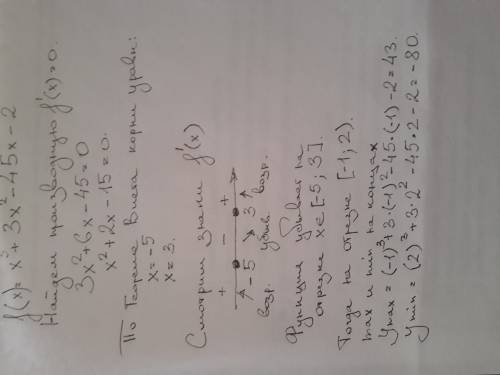 f(x) = x³ + 3x² - 45x - 2
Найдем производную f'(x) = 0.
3x² + 6x - 45 = 0
x² + 2x - 15 = 0.
По Теореме Виета корни уравн:
x = -5
x = 3.
Смотрим знаки f'(x)
+ - +
-5 3
возр. убыв. возр.
Функция убывает на
отрезке x∈[-5; 3].
Тогда на отрезке [-1; 2).
max и min на концах
Ymax = (-1)³ + 3·(-1)² - 45·(-1) - 2 = 43.
Ymin = (2)³ + 3·2² - 45·2 - 2 = -80.